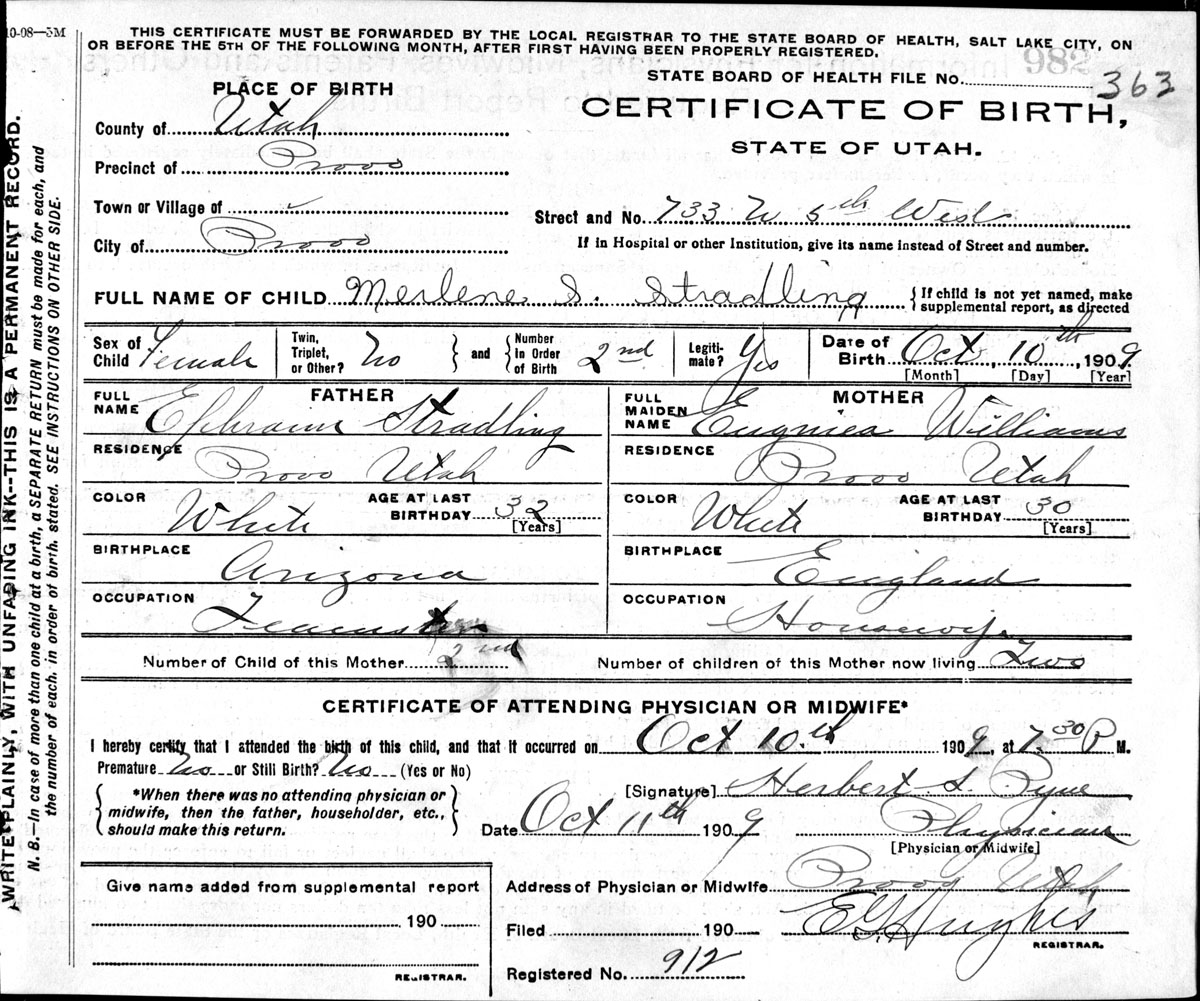 10-08—5M
THIS CERTIFICATE MUST BE FORWARDED BY THE LOCAL REGISTRAR TO THE STATE BOARD OF HEALTH, SALT LAKE CITY, ON
OR BEFORE THE 5TH OF THE FOLLOWING MONTH, AFTER FIRST HAVING BEEN PROPERLY REGISTERED.
STATE BOARD OF HEALTH FILE No. 363
PLACE OF BIRTH
CERTIFICATE OF BIRTH,
STATE OF UTAH.
County of Utah
Precinct of Provo
Town or Village of
Street and No. 733 W 5th West
City of Provo
If in Hospital or other Institution, give its name instead of Street and number.
FULL NAME OF CHILD Merlene S. Stradling { If child is not yet named, make supplemental report, as directed
Sex of Child Female Twin, Triplet, or Other? No } and { Number in Order of Birth 2nd Legiti-mate? Yes Date of Birth Oct, 10th, 1909
[Month] [Day] [Year]
FATHER
FULL NAME Ephraim Stradling
RESIDENCE Provo Utah
COLOR White AGE AT LAST BIRTHDAY 32 [Years]
BIRTHPLACE Arizona
OCCUPATION Teamster
MOTHER
FULL MAIDEN NAME Williams
RESIDENCE Provo Utah
COLOR White AGE AT LAST BIRTHDAY 30 [Years]
BIRTHPLACE England
OCCUPATION Housewife
Number of Child of this Mother 2nd Number of children of this Mother now living Two
CERTIFICATE OF ATTENDING PHYSICIAN OR MIDWIFE*
I hereby certify that I attended the birth of this child, and that it occurred on Oct 10th 1909, at 7.30 P M.
Premature No or Still Birth? No (Yes or No)
{ *When there was no attending physician or midwife, then the father, householder, etc., should make this return. }
[Signature] Herbert S. Pyne
Date Oct 11th 1909 Physician
[Physician or Midwife]
Give name added from supplemental report
190
REGISTRAR.
Address of Physician or Midwife Provo Utah
Filed 190 E G Hughes
REGISTRAR.
Registered No. 912
WRITE PLAINLY, WITH UNFADING INK--THIS IS A PERMANENT RECORD.
N. B.—In case of more than one child at a birth, a SEPARATE RETURN must be made for each, and
the number of each, in order of birth, stated. SEE INSTRUCTIONS ON OTHER SIDE.